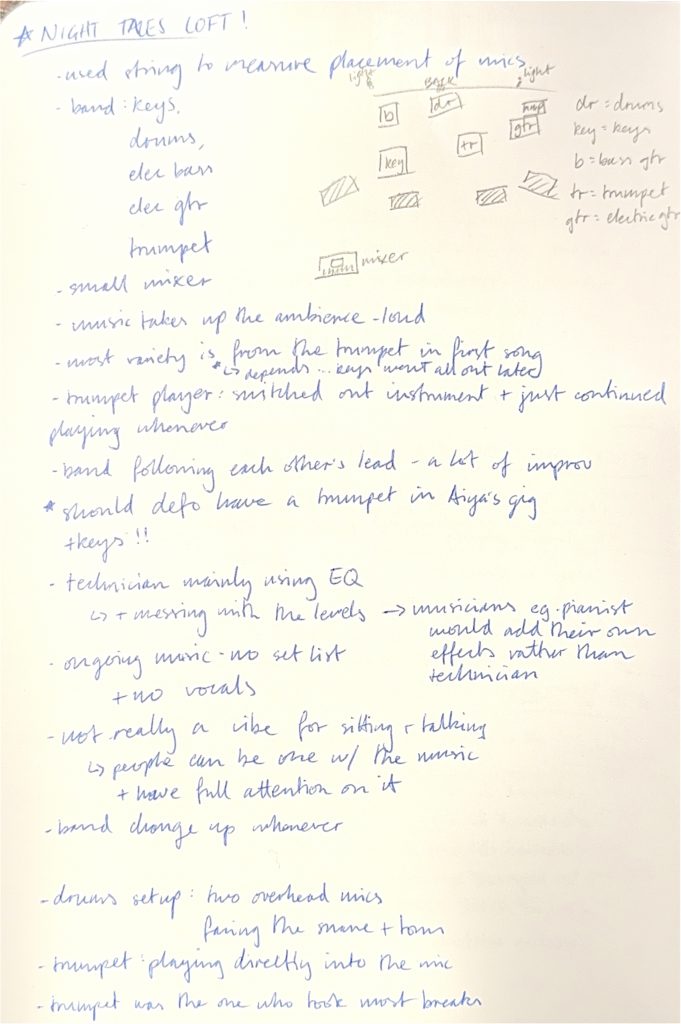 * NIGHT TALES LOFT!
- used string to measure placement of mics
light BACK light
- band: keys,
drums,
elec bass
elec gtr
trumpet
b dr amp
gtr
tr
key
dr = drums
key = keys
b = bass gtr
tr = trumpet
gtr = electric gtr
mixer
- small mixer
- music takes up the ambience - loud
- most variety is from the trumpet in first song
* ↳ depends... keys went all out later
- trumpet player: switched out instrument + just continued
playing whenever
- band following each other's lead - a lot of improv
* should defo have a trumpet in Aiya's gig
+ keys!!
- technician mainly using EQ
↳ + messing with the levels → musicians eg. pianist
would add their own
effects rather than
technician
- ongoing music - no set list
+ no vocals
- not really a vibe for sitting + talking
↳ people can be one w/ the music
+ have full attention on it
- band change up whenever
- drums setup: two overhead mics
facing the snare + toms
- trumpet: playing directly into the mic
- trumpet was the one who took most breaks